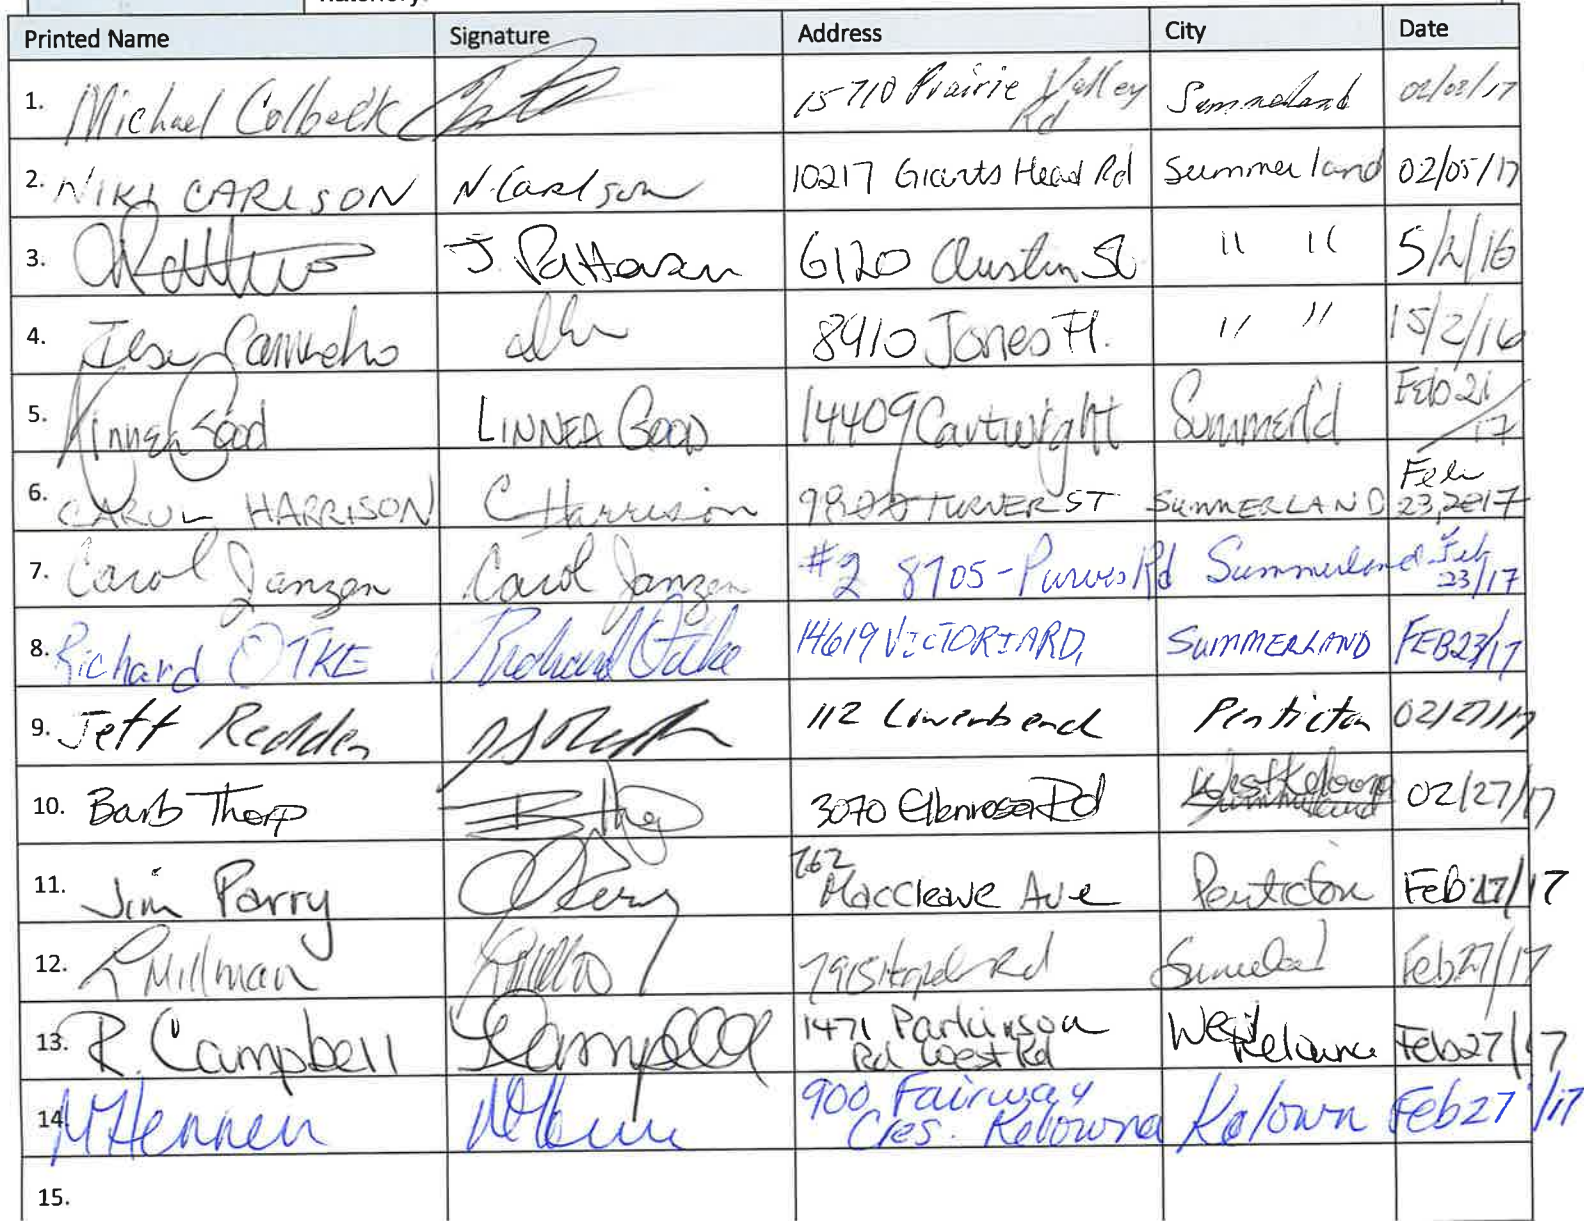 Printed Name Signature Address City Date
1. Michael Colbeck 15710 Prairie Valley Rd Summerland 02/02/17
2. NIKI CARLSON N. Carlson 10217 Giants Head Rd Summerland 02/05/17
3. J. Patterson 6120 Austin St " " 5/2/16
4. 8410 Jones Fl. " " 15/2/16
5. Linnea Good LINNEA GOOD 14409 Cartwright Summerl'd Feb 21/17
6. CAROL HARRISON C Harrison TURNER ST SUMMERLAND Feb 23, 2017
7. Carol Janzen Carol Janzen #2 8705 - Purves Rd Summerland Feb 23/17
8. Richard OTKE Richard Otke 14619 VICTORIA RD, SUMMERLAND FEB 23/17
9. Jeff Redden 112 Lowerbench Penticton 02/27/17
10. Barb Thorp B Thorp 3070 Glenrosa Rd West Kelowna Summerland 02/27/17
11. Jim Parry 762 MacCleave Ave Penticton Feb 27/17
12. L Millman Rd Summerland Feb 27/17
13. R. Campbell RCampbell 1471 Parkinson Rd West Rd West Kelowna Feb 27/17
14. M Hennen 900 Fairway Cres. Kelowna Kelown Feb 27/17
15.